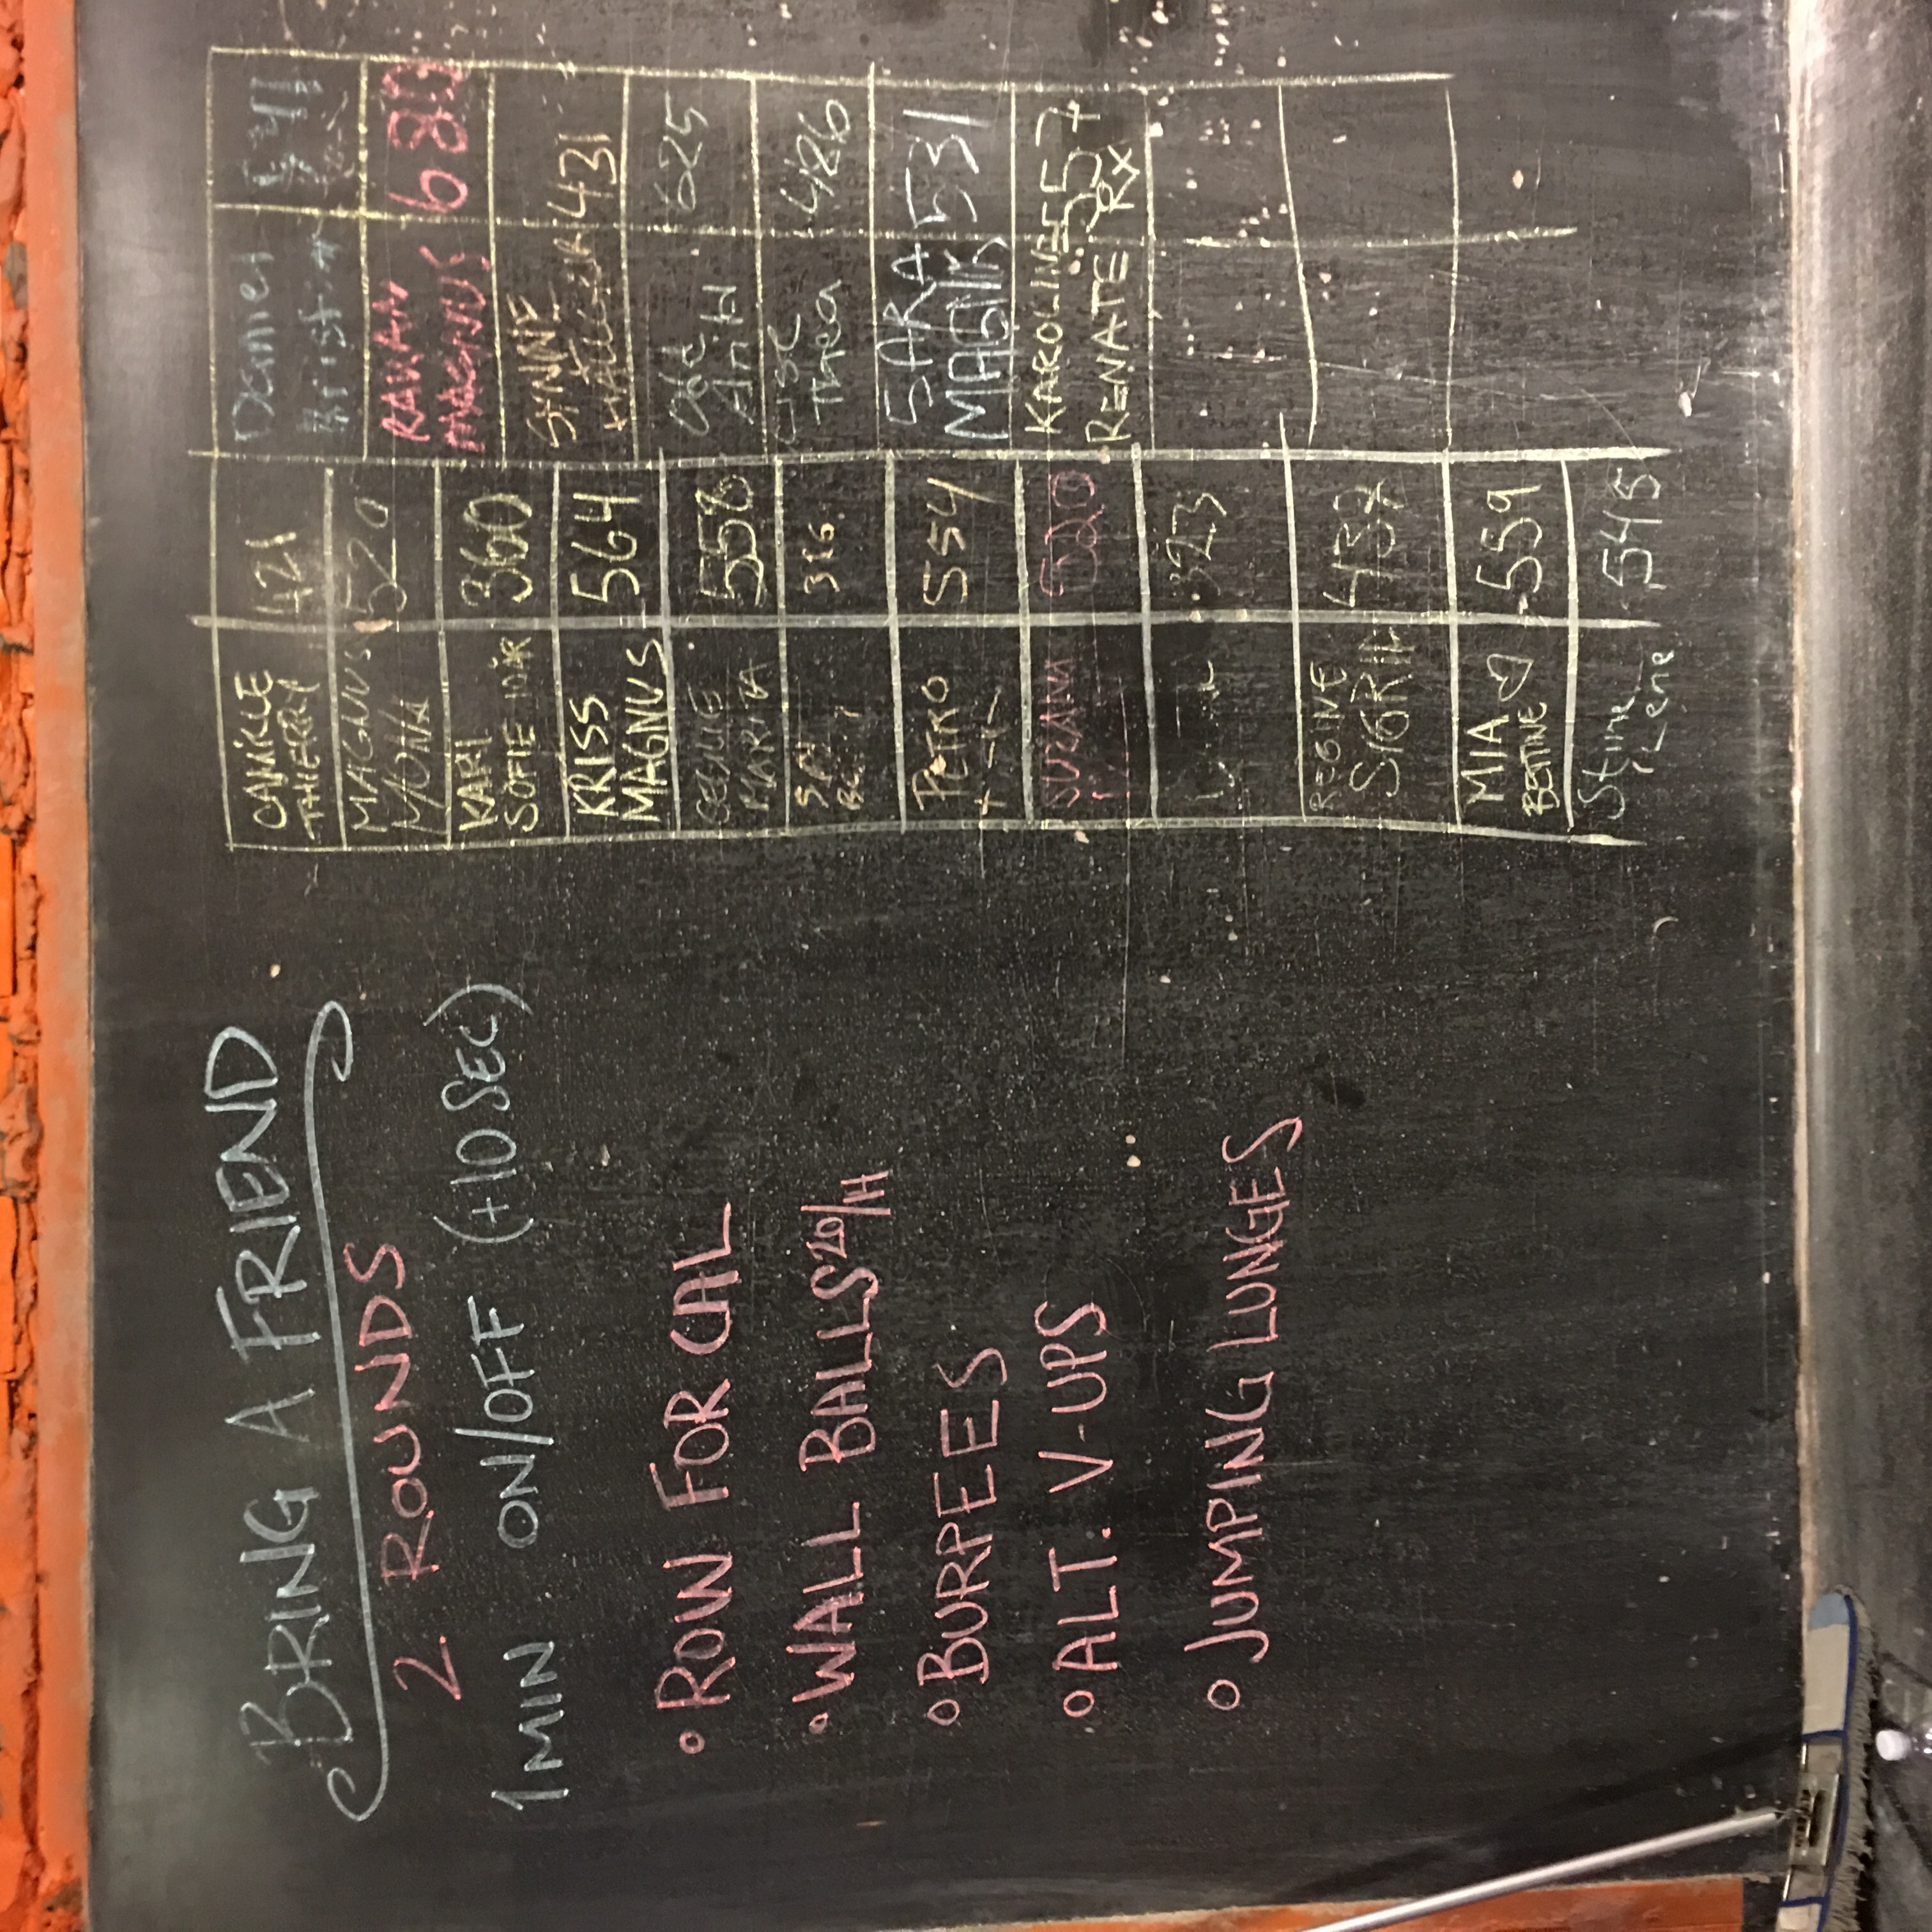 BRING A FRIEND
2 ROUNDS
1 MIN ON/OFF (+10 SEC)
ROW FOR CAL
WALL BALLS 20/14
BURPEES
ALT. V-UPS
JUMPING LUNGES
CAMILLE
THIERRY 421
MAGNUS
MONA 520
KARI
SOFIE 360
KRISS
MAGNUS 564
MARITA 558
316
PETRO 554
SUSANN 520
323
REGINE
SIGRID 437
MIA ♡
BETINE 559
Stine
Lene 545
Daniel
RAWAN
MAGNUS 680
SYNNE 431
Odd
Arild 625
Thea 486
SARA
MAGNIK 531
KAROLINE 557
RENATE RX